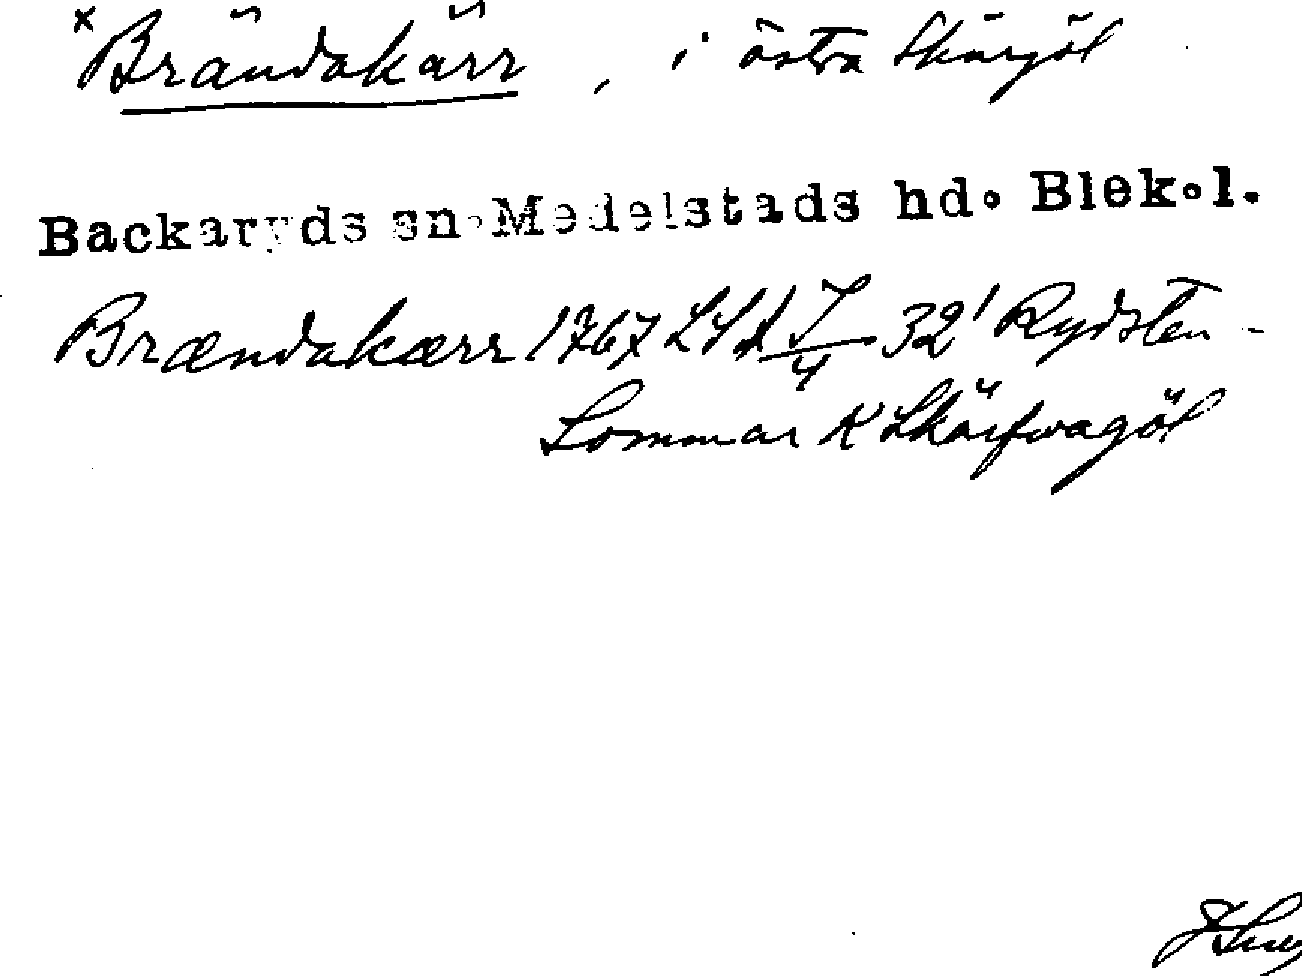 × Brändakärr, i östra Skärgöl
Backaryds sn. Medelstads hd. Blek.l.
Brændakærr 1767 LSA J/4 32' Rydsten-
Lommar K Skärfwagöl